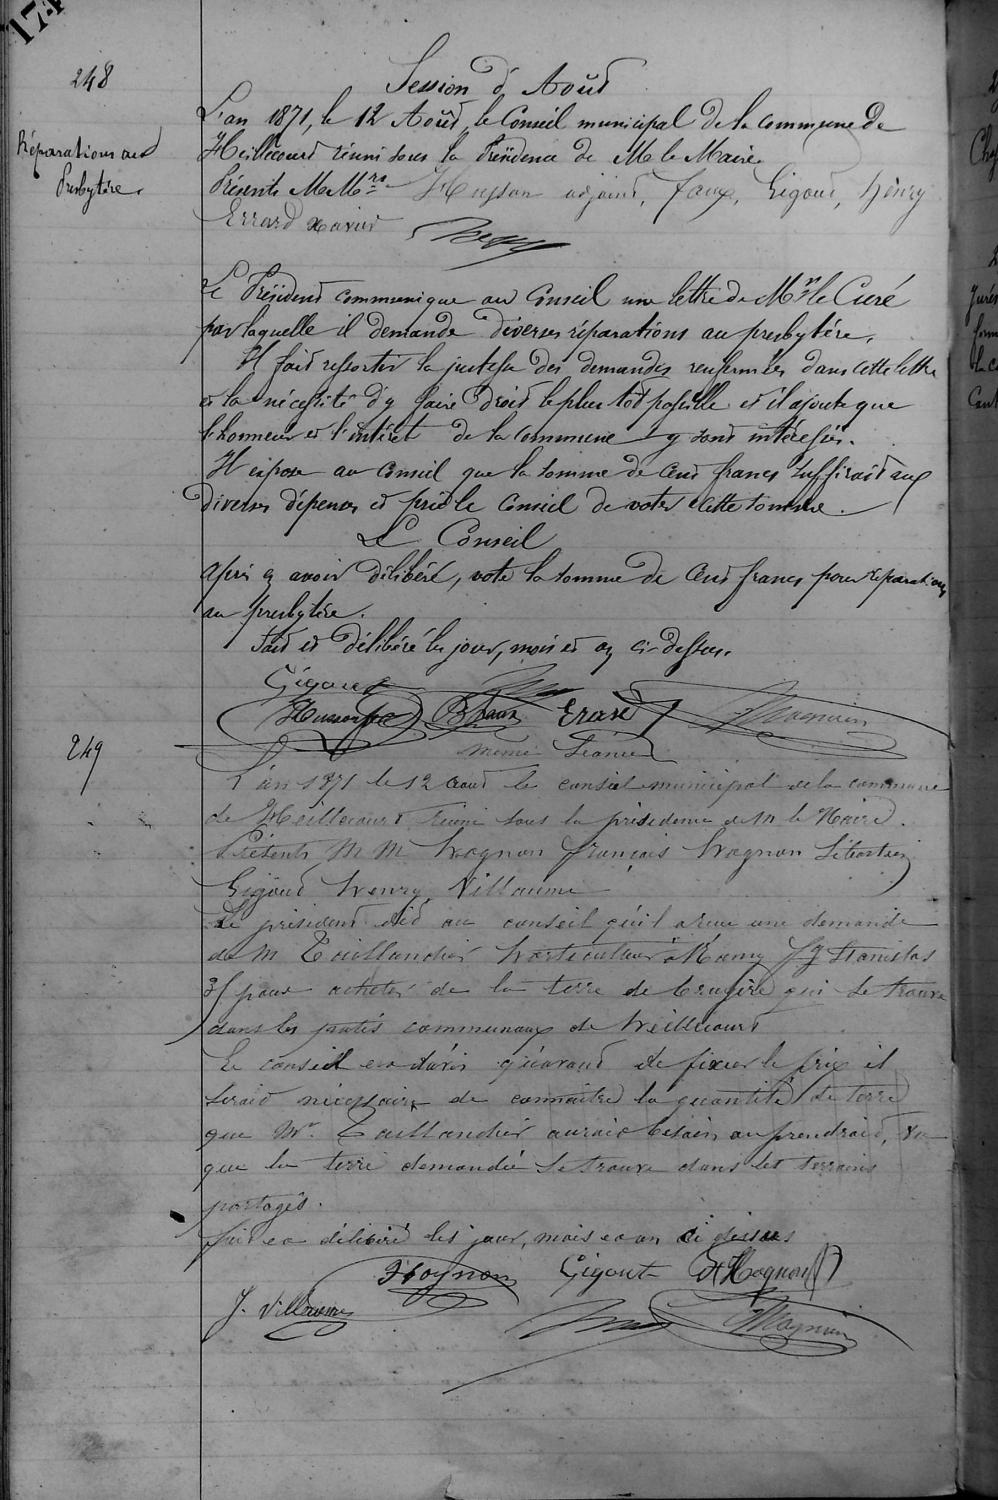 174
248
Réparations au
Presbytère.
Session d'Août
L'an 1871, le 12 Août, le Conseil municipal de la commune de
Heillecourt réuni sous la Présidence de M le Maire.
Présents MM.rs Husson adjoint, Faux, Gigout, henry
Errard xavier
Le Président communique au Conseil une lettre de Mr le Curé
par laquelle il demande diverses réparations au presbytére.
Il fait ressortir la justesse des demandes renfermées dans cette lettre
et la nécessité d'y faire droit le plus tôt possible et il ajoute que
l'honneur et l'intérêt de la commune y sont intéressés.
Il expose au conseil que la somme de Cent francs suffirait aux
diverses dépenses et prie le Conseil de voter cette somme.
Le Conseil
Après en avoir délibéré, vote la somme de Cent francs pour réparations
au presbytère.
Fait et délibéré les jour, mois et an ci-dessus.
Gigout
Husson B Faux Erard Magnien
249
meme Séance
L'an 1871 le 12 aout le conseil municipal de la commune
de Heillecourt réuni sous la présidence de M le Maire.
Présents M M hognon françois hognon Sébastien
Gigout henry Villaume
Le président dit au conseil qu'il a reçu une demande
de M Taillandier horticulteur à Nancy fg Stanislas
31 pour acheter de la terre de bruyère qui se trouve
dans les patis communaux de heillecourt
Le conseil est d'avis qu'avant de fixer le prix il
serait nécessaire de connaître la quantité de terre
que Mr. Taillandier aurait besoin ou prendrait, vu
que la terre demandée se trouve dans les terrains
partagés.
fait et délibéré les jour, mois et an ci dessus
Hognon Gigout Hognon
J. Villaume Magnien